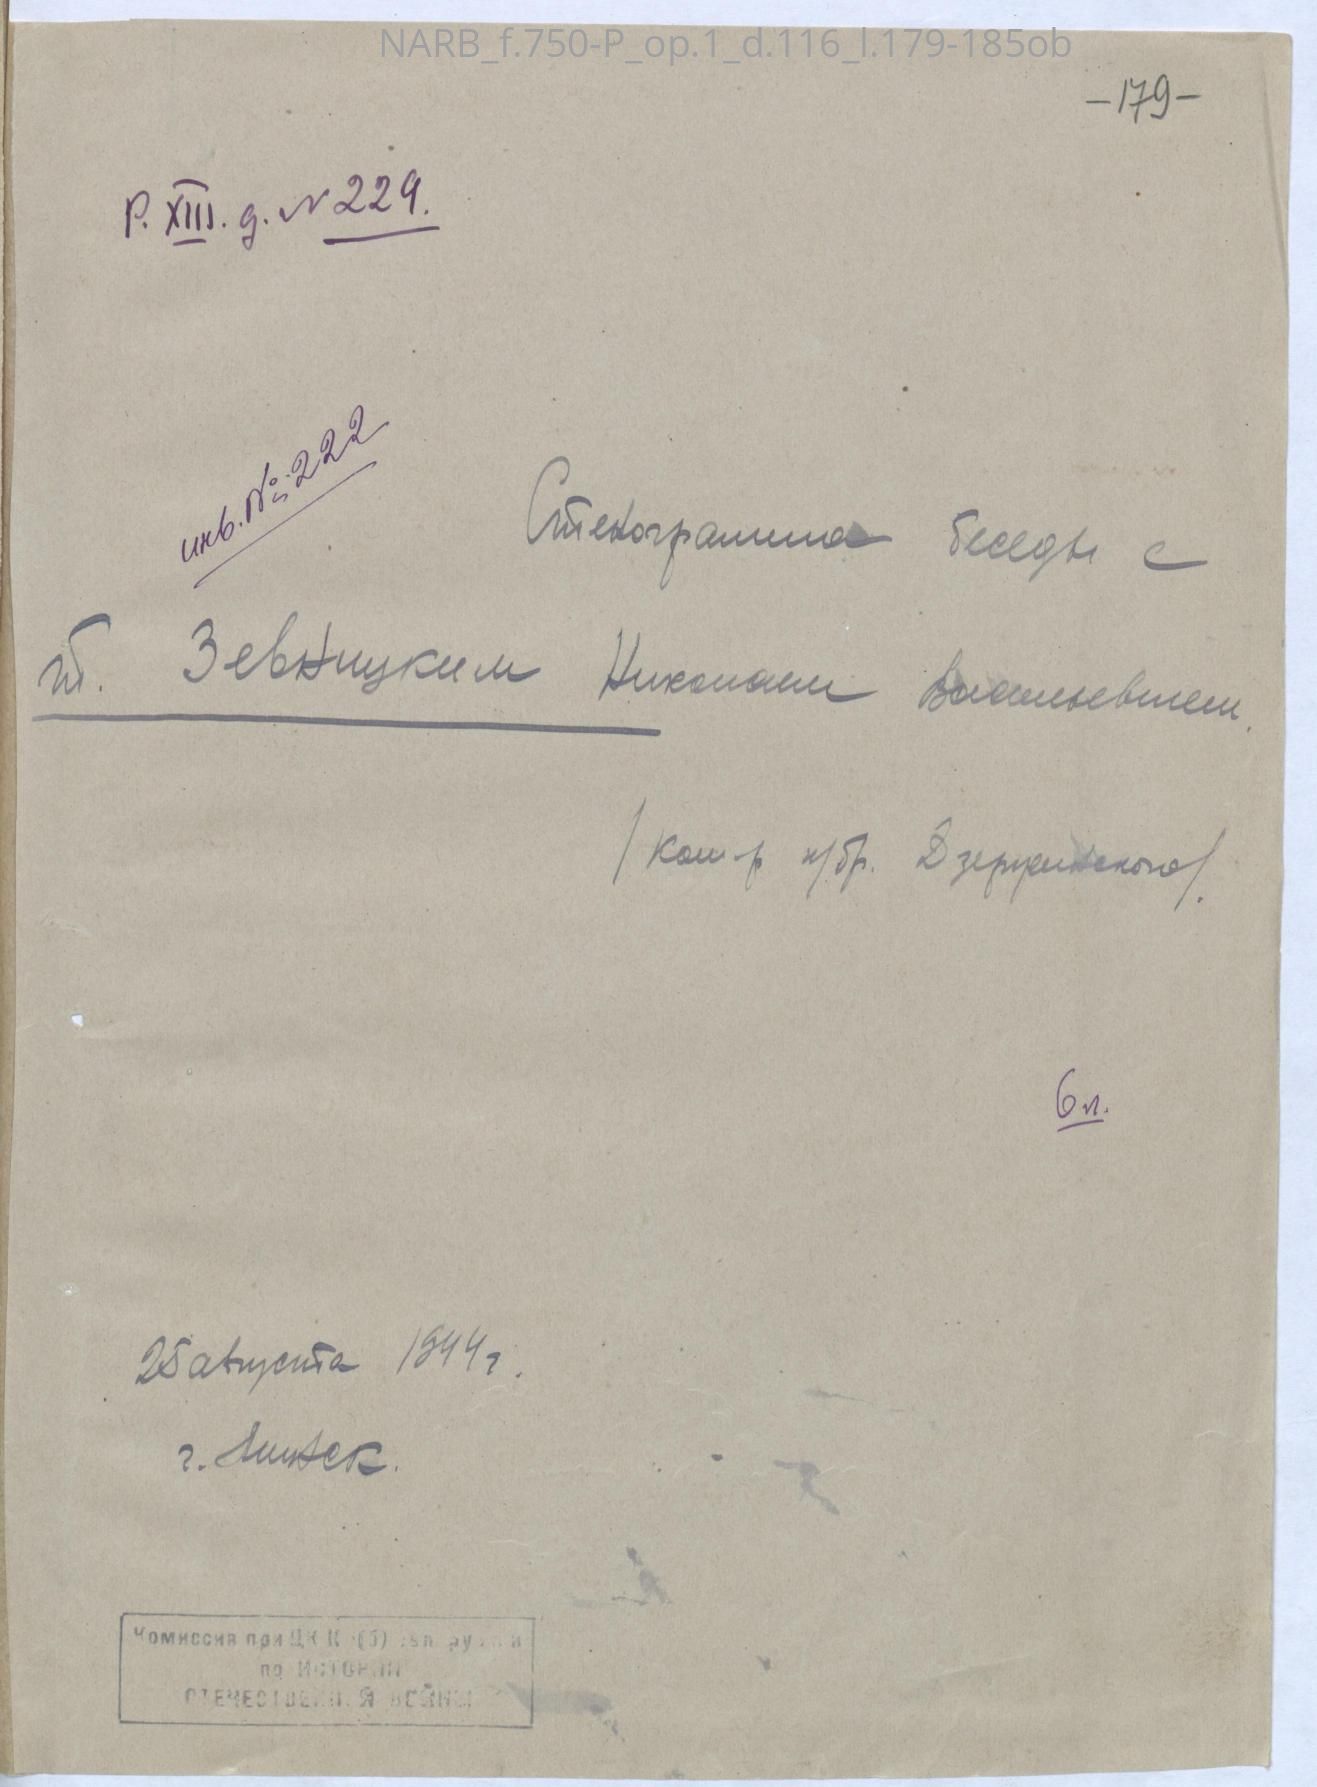 NARB_f.750-P_op.1_d.116_l.179-185ob
-179-
Р. XIII. д. N 229.
инв. №: 222
Стенограмма беседы с
т. Зевницким Николаем Васильевичем.
/ Ком-р п/бр. Дзержинского/.
6 л.
25 августа 1944 г.
г. Минск.
Комиссия при ЦК
по ИСТОРИИ
ОТЕЧЕСТВЕННОЙ ВОЙНЫ